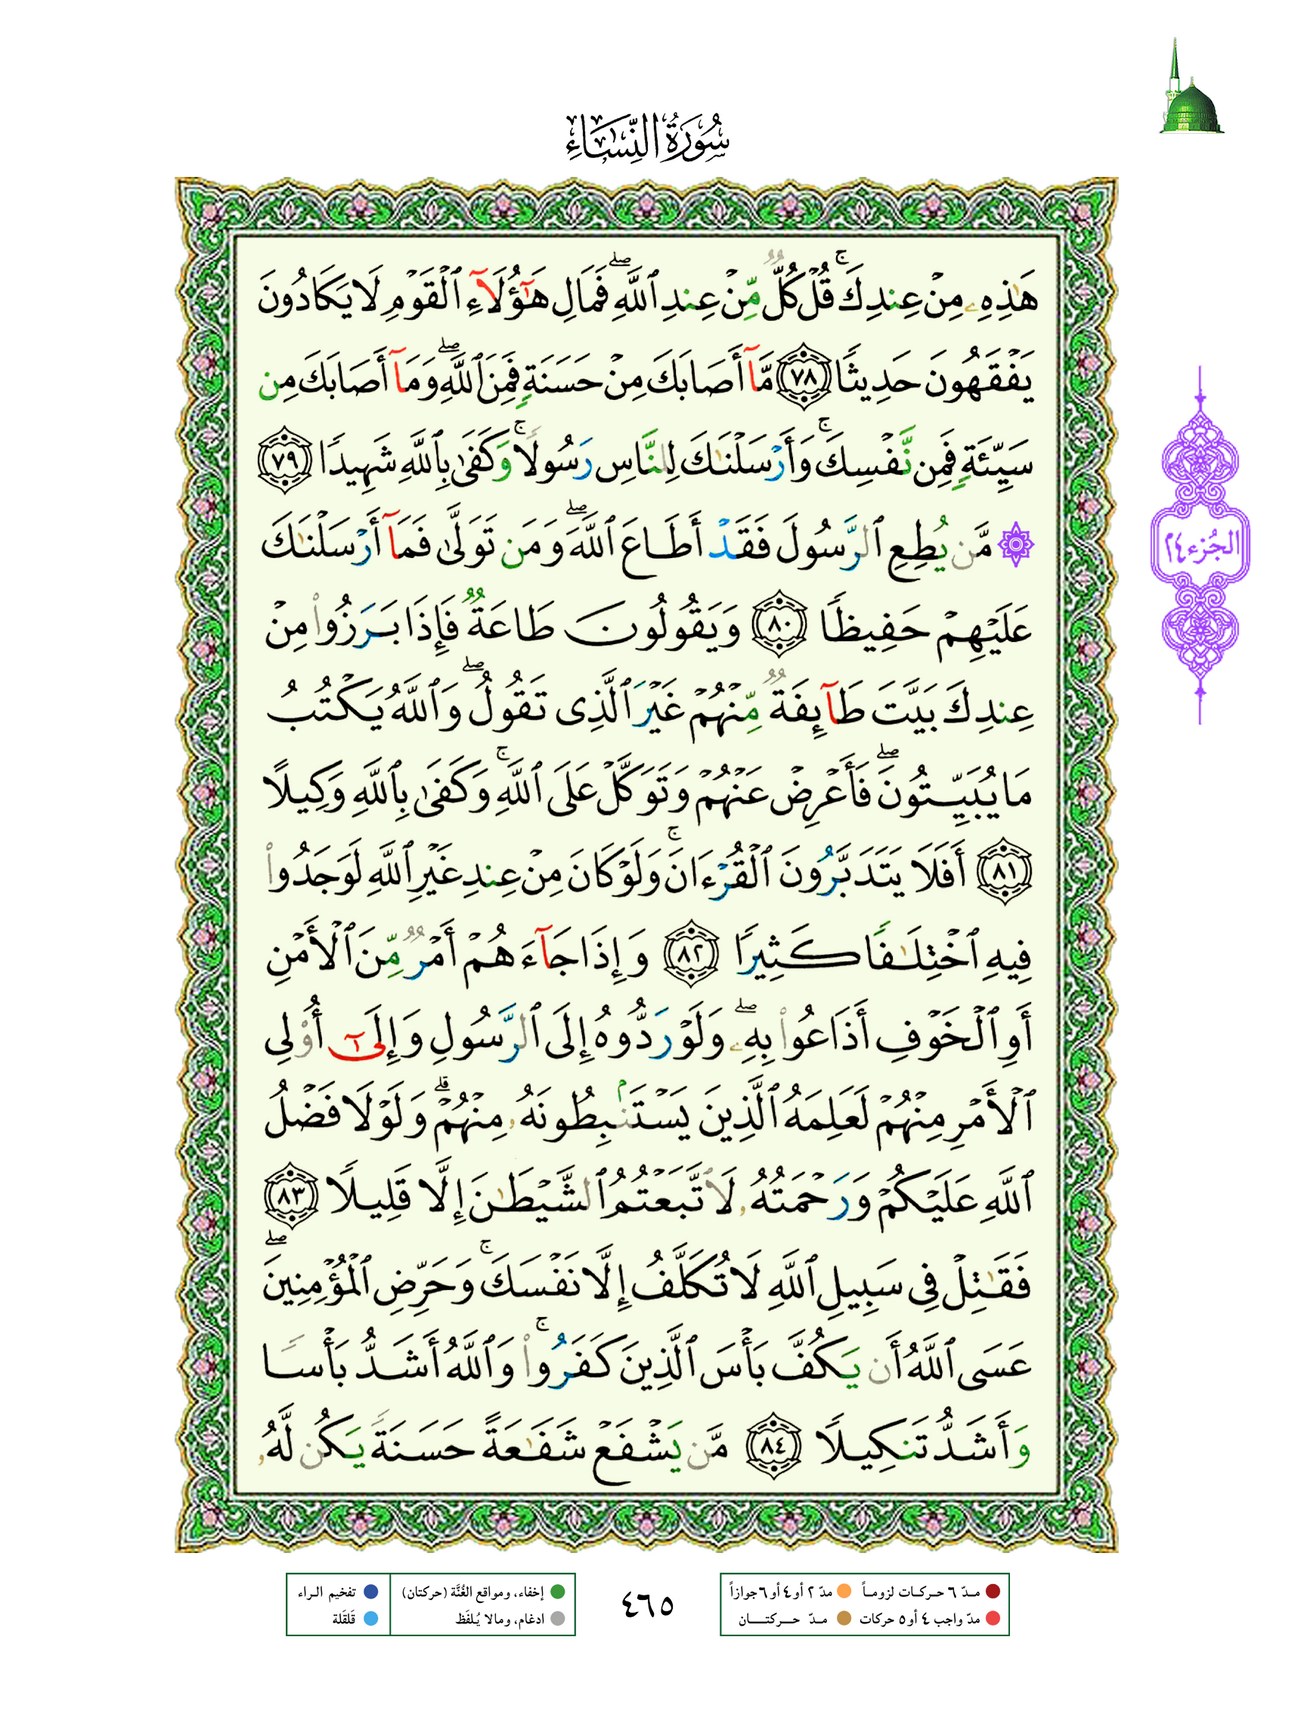 سُورَةُ النِّسَاءِ
هَٰذِهِۦ مِنْ عِندِكَ ۚ قُلْ كُلٌّ مِّنْ عِندِ ٱللَّهِ ۖ فَمَالِ هَٰٓؤُلَآءِ ٱلْقَوْمِ لَا يَكَادُونَ
يَفْقَهُونَ حَدِيثًا ٧٨ مَّآ أَصَابَكَ مِنْ حَسَنَةٍ فَمِنَ ٱللَّهِ ۖ وَمَآ أَصَابَكَ مِن
سَيِّئَةٍ فَمِن نَّفْسِكَ ۚ وَأَرْسَلْنَٰكَ لِلنَّاسِ رَسُولًا ۚ وَكَفَىٰ بِٱللَّهِ شَهِيدًا ٧٩
۞ مَّن يُطِعِ ٱلرَّسُولَ فَقَدْ أَطَاعَ ٱللَّهَ ۖ وَمَن تَوَلَّىٰ فَمَآ أَرْسَلْنَٰكَ
عَلَيْهِمْ حَفِيظًا ٨٠ وَيَقُولُونَ طَاعَةٌ فَإِذَا بَرَزُوا۟ مِنْ
عِندِكَ بَيَّتَ طَآئِفَةٌ مِّنْهُمْ غَيْرَ ٱلَّذِى تَقُولُ ۖ وَٱللَّهُ يَكْتُبُ
مَا يُبَيِّتُونَ ۖ فَأَعْرِضْ عَنْهُمْ وَتَوَكَّلْ عَلَى ٱللَّهِ ۚ وَكَفَىٰ بِٱللَّهِ وَكِيلًا
٨١ أَفَلَا يَتَدَبَّرُونَ ٱلْقُرْءَانَ ۚ وَلَوْ كَانَ مِنْ عِندِ غَيْرِ ٱللَّهِ لَوَجَدُوا۟
فِيهِ ٱخْتِلَٰفًا كَثِيرًا ٨٢ وَإِذَا جَآءَهُمْ أَمْرٌ مِّنَ ٱلْأَمْنِ
أَوِ ٱلْخَوْفِ أَذَاعُوا۟ بِهِۦ ۖ وَلَوْ رَدُّوهُ إِلَى ٱلرَّسُولِ وَإِلَىٰٓ أُو۟لِى
ٱلْأَمْرِ مِنْهُمْ لَعَلِمَهُ ٱلَّذِينَ يَسْتَنۢبِطُونَهُۥ مِنْهُمْ ۗ وَلَوْلَا فَضْلُ
ٱللَّهِ عَلَيْكُمْ وَرَحْمَتُهُۥ لَٱتَّبَعْتُمُ ٱلشَّيْطَٰنَ إِلَّا قَلِيلًا ٨٣
فَقَٰتِلْ فِى سَبِيلِ ٱللَّهِ لَا تُكَلَّفُ إِلَّا نَفْسَكَ ۚ وَحَرِّضِ ٱلْمُؤْمِنِينَ ۖ
عَسَى ٱللَّهُ أَن يَكُفَّ بَأْسَ ٱلَّذِينَ كَفَرُوا۟ ۚ وَٱللَّهُ أَشَدُّ بَأْسًا
وَأَشَدُّ تَنكِيلًا ٨٤ مَّن يَشْفَعْ شَفَٰعَةً حَسَنَةً يَكُن لَّهُۥ
الجُزء ٢٤
مـدّ ٦ حـركـات لزومـاً مدّ ٢ أو ٤ أو ٦ جوازاً
مدّ واجب ٤ أو ٥ حركات مـدّ حـــركتـــــان
٤٦٥
إخفاء، ومواقع الغُنَّة (حركتان) تفخيم الـراء
ادغام، ومالا يُـلفَظ قَلقَلة